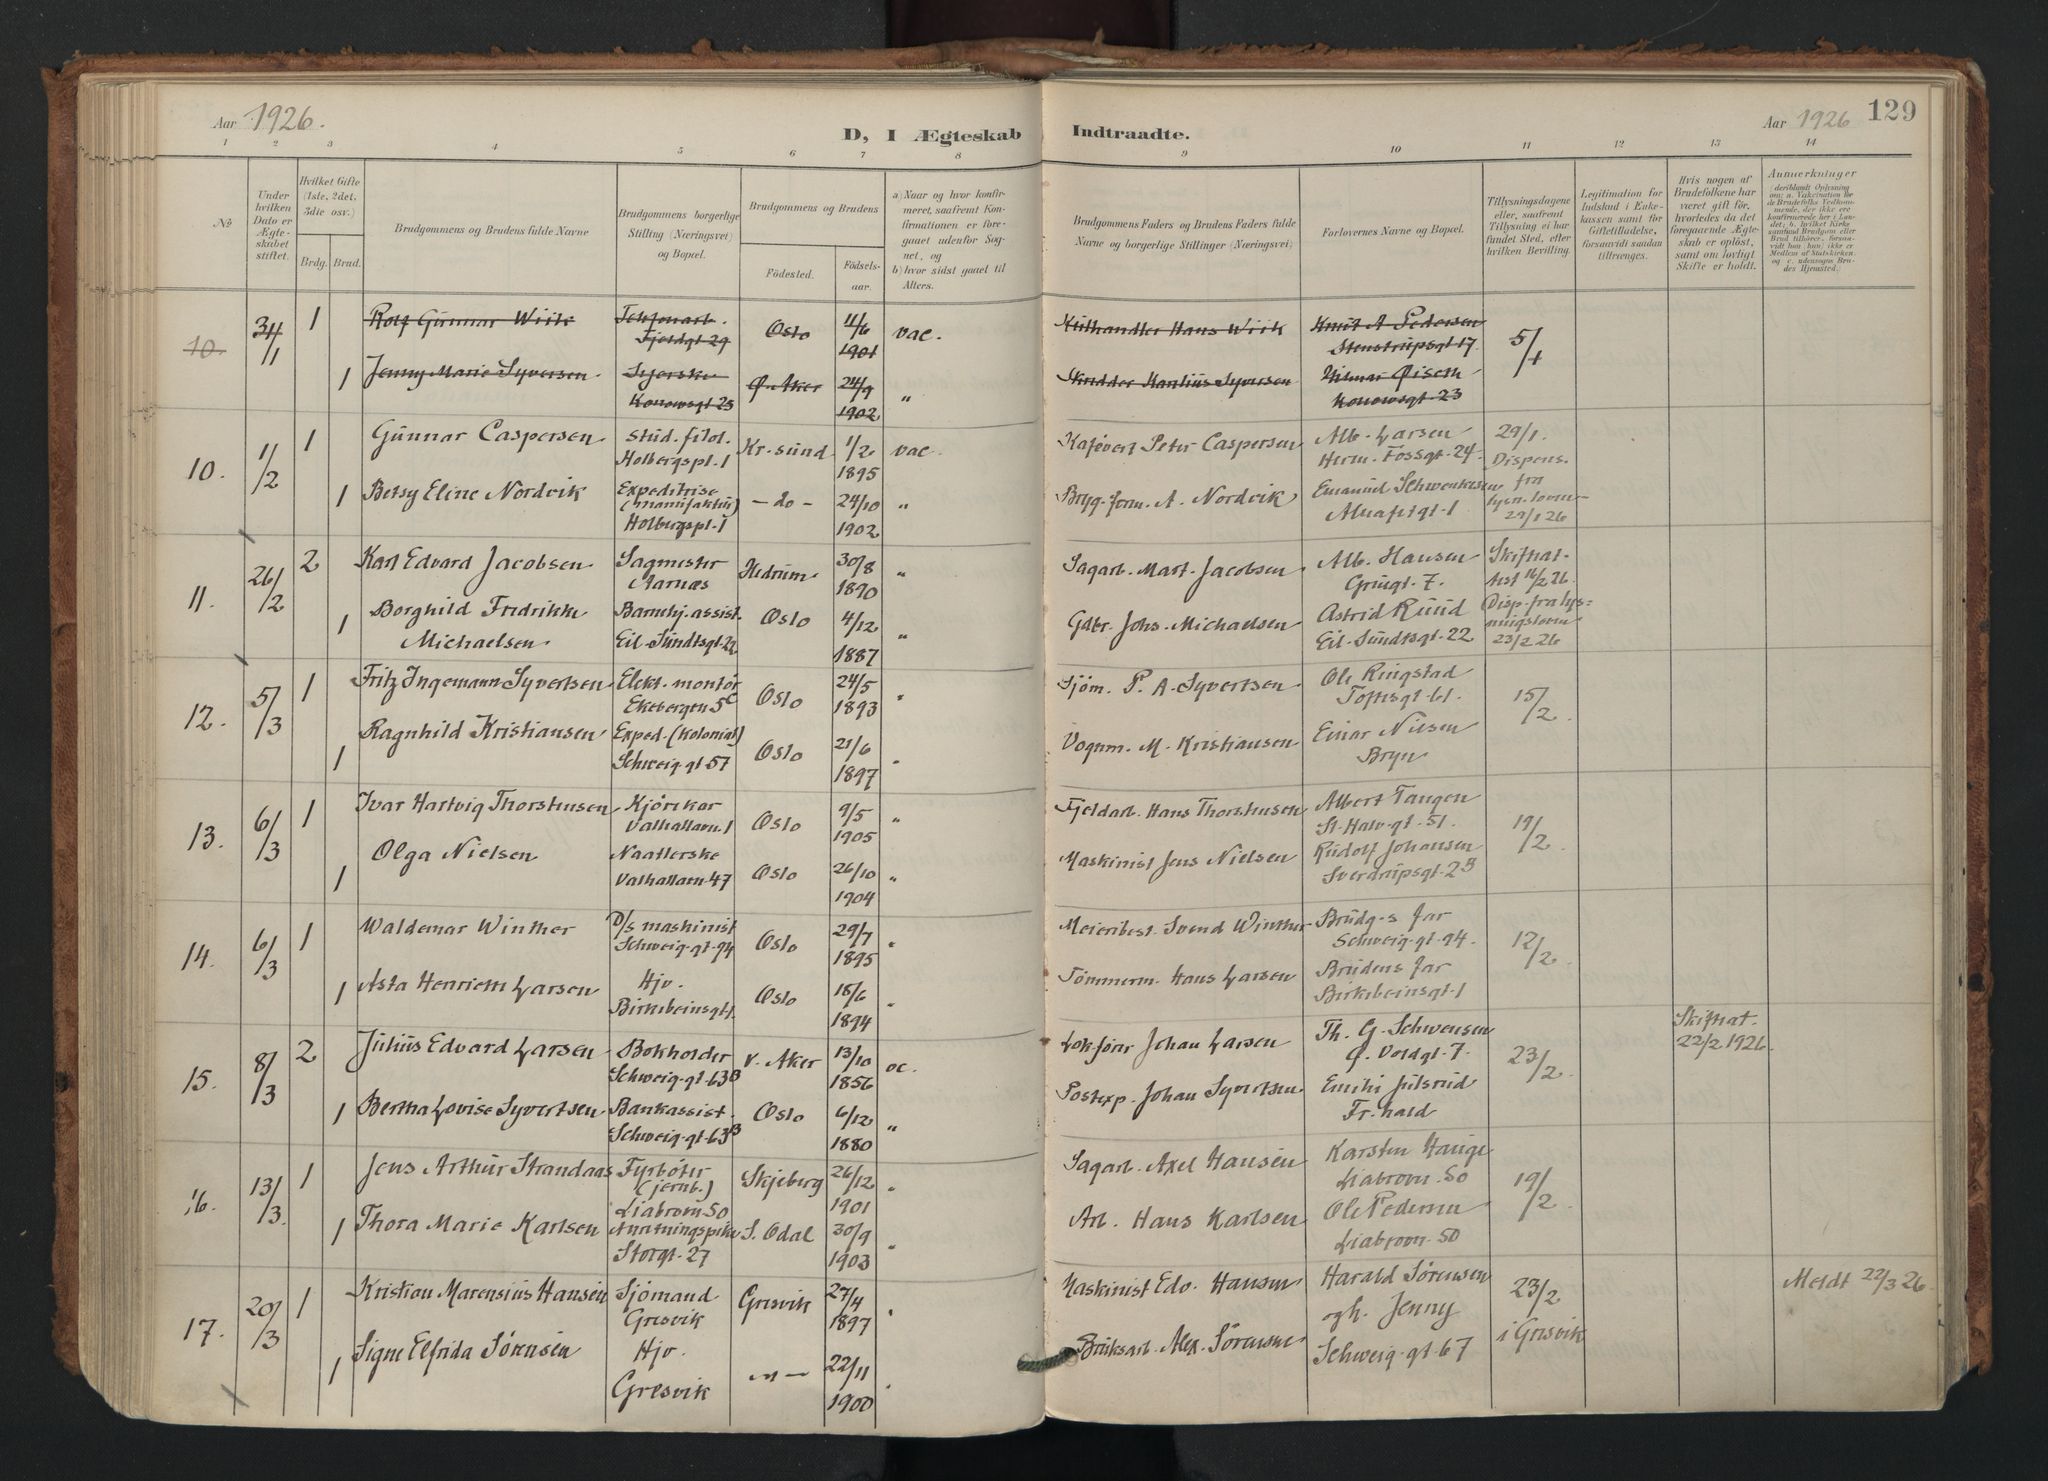 Aar 1926.
D, I Ægteskab
Indtraadte.
Aar 1926
129
1 2 3 4 5 6 7 8 9 10 11 12 13 14
№
Under hvilken Dato er Ægteskabet stiftet.
Hvilket Gifte (1ste, 2det, 3die osv.)
Brdg. Brud.
Brudgommens og Brudens fulde Navne
Brudgommens borgerlige Stilling (Næringsvei) og Bopæl.
Brudgommens og Brudens
Fødested.
Fødselsaar.
a) Naar og hvor konfirmeret, saafremt Konfirmationen er foregaaet udenfor Sognet, og
b) hvor sidst gaaet til Alters.
Brudgommens Faders og Brudens Faders fulde Navne og borgerlige Stillinger (Næringsvei)
Forlovernes Navne og Bopæl.
Tillysningsdagene eller, saafremt Tillysning ei har fundet Sted, efter hvilken Bevilling.
Legitimation for Indskud i Enkekassen samt for Giftetilladelse, forsaavidt saadan tiltrænges.
Hvis nogen af Brudefolkene har været gift før, hvorledes da det foregaaende Ægteskab er opløst, samt om lovligt Skifte er holdt.
Anmerkninger
10. 1 Rolf Gunnar Wiik Fjeldgt 29 Oslo 11/6 1901 vac. Kulhandler Hans Wiik Knut A Pedersen Stenstrupsgt 17 5/1
1 Jenny Marie Syversen Syerske Konowsgt 23 Ø. Aker 24/9 1902 " Skrædder Syversen Hilmar Konowsgt. 23
10. 1/2 1 Gunnar Caspersen stud. filol. Holbergspl. 1 Kr.sund 1/2 1895 vac. Kafévert Peter Caspersen Alb. Larsen Herm. Fossgt. 24. 29/1. Dispens. fra
1 Betsy Eline Nordvik Expeditrise (manufaktur) Holbergspl. 1 - do - 24/10 1902 " Bryg. form. A. Nordvik Emanuel 29/1 26
11. 26/2 2 Karl Edvard Jacobsen Sagmester Aarnæs Hedrum 30/8 1890 " Sagarb. Mart. Jacobsen Alb. Hansen Grüngt. 7. Skifteattest 16/2 26.
1 Borghild Fredrikke Michaelsen Barnehj. assist. Eil. Sundtsgt. 22 Oslo 4/12 1887 " Gdbr. Johs. Michaelsen Astrid Ruud Eil. Sundtsgt. 22 Disp. fra lysningsloven 23/2 26
12. 5/3 1 Fritz Ingemann Syvertsen Elekt. montør Ekebergen 5c Oslo 24/5 1893 " Sjøm. P. A. Syvertsen Ole Ringstad Toftesgt. 61. 15/2.
1 Ragnhild Kristiansen Exped. (kolonial) Schweig. gt. 57 Oslo 21/6 1897 " Vognm. M. Kristiansen Einar Nilsen Bryn
13. 6/3 1 Ivar Hartvig Thorstensen Kjørekar Valhallavn. 1 Oslo 9/5 1905 " Fjeldarb. Hans Thorstensen Albert Tangen St. Halv. gt. 51. 19/2.
1 Olga Nielsen Naatlerske Valhallavn. 47 Oslo 26/10 1904 " Maskinist Jens Nielsen Rudolf Johansen Sverdrupsgt. 2B
14. 6/3 1 Waldemar Winther D/s maskinist Schweig. gt. 94 Oslo 29/7 1895 " Meieribest. Svend Winther Brudg.s far Schweig. gt. 94. 12/2.
1 Asta Henriette Larsen Hjv. Birkebeinsgt. 1. Oslo 18/6 1894 " Tømmerm. Hans Larsen Brudens far Birkebeinsgt. 1
15. 8/3 2 Julius Edvard Larsen Bokholder Schweig. gt. 63B V. Aker 13/10 1856 oc. Lokfører Johan Larsen Th. G. Schwensen G. Voldgt. 7. 23/2. Skifteat. 22/2 1926.
1 Bertha Lovise Syvertsen Bankassist. Schweig. gt. 63B Oslo 6/12 1880 " Postexp. Johan Syvertsen Emilie Julsrud Fr.hald
16. 13/3. 1 Jens Arthur Strandaas Fyrbøter (jernb.) Liabrovn. 50 Skjeberg 26/12 1901 " Sagarb. Axel Hansen Karsten Hauge Liabrovn. 50 19/2.
1 Thora Marie Karlsen Anretningspike Storgt. 27 S. Odal 30/9 1903 " Arb. Hans Karlsen Ole Pedersen Liabrovn. 50
17. 20/3 1 Kristian Marensius Hansen Sjømand Gresvik Gresvik 27/4 1897 " Maskinist Edv. Hansen Harald Sørensen og h. Jenny 23/2 i Gresvik Meldt 22/3 26.
1 Signe Elfrida Sørensen Hjv. Gresvik — " — 22/11 1900 Bruksarb. Alex. Sørensen Schweig. gt. 67